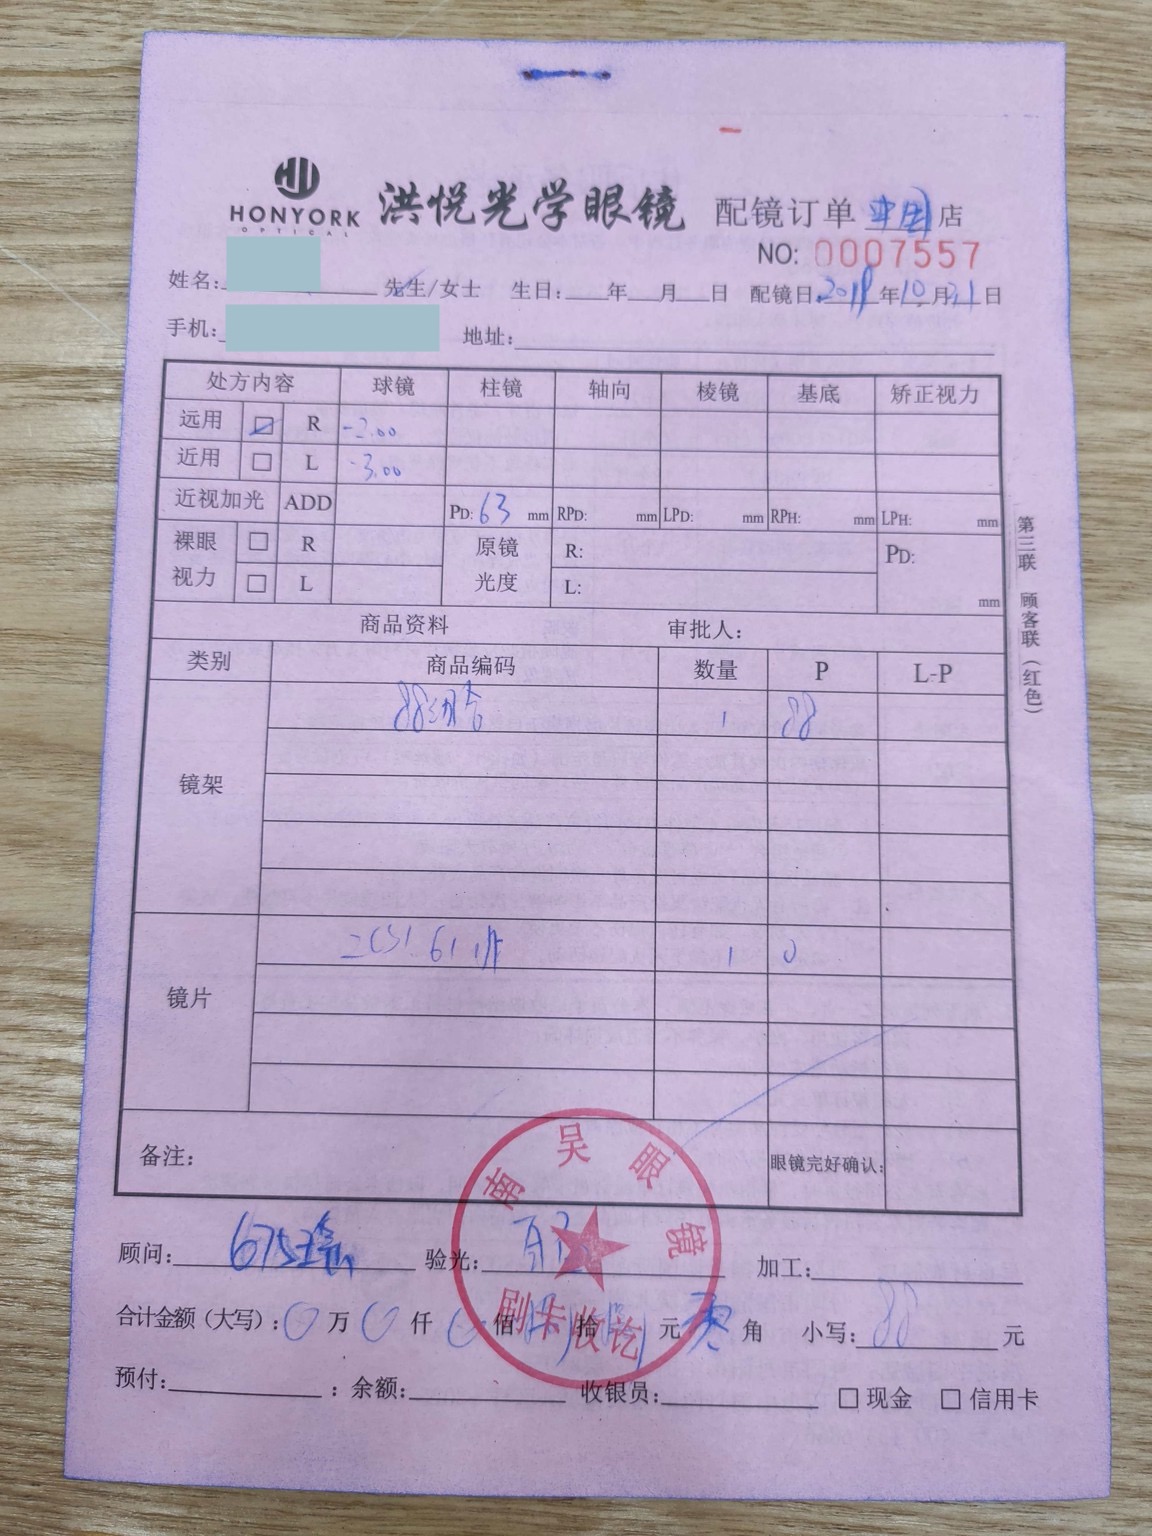 HONYORK
OPTICAL
洪悦光学眼镜 配镜订单 店
NO: 0007557
姓名: 先生/女士 生日: 年 月 日 配镜日 2019年10月31日
手机: 地址:
处方内容 球镜 柱镜 轴向 棱镜 基底 矫正视力
远用 R -2.00
近用 L -3.00
近视加光 ADD PD: 63 mm RPD: mm LPD: mm RPH: mm LPH: mm
裸眼视力 R L 原镜光度 R: L: PD: mm
商品资料 审批人:
类别 商品编码 数量 P L-P
镜架 88 1 88
镜片 1 0
备注: 眼镜完好确认:
顾问: 验光: 加工:
合计金额(大写): 0万0仟0佰 拾 元 角 小写: 88 元
预付: : 余额: 收银员: □现金 □信用卡
南吴眼镜
刷卡收讫
第三联 顾客联(红色)